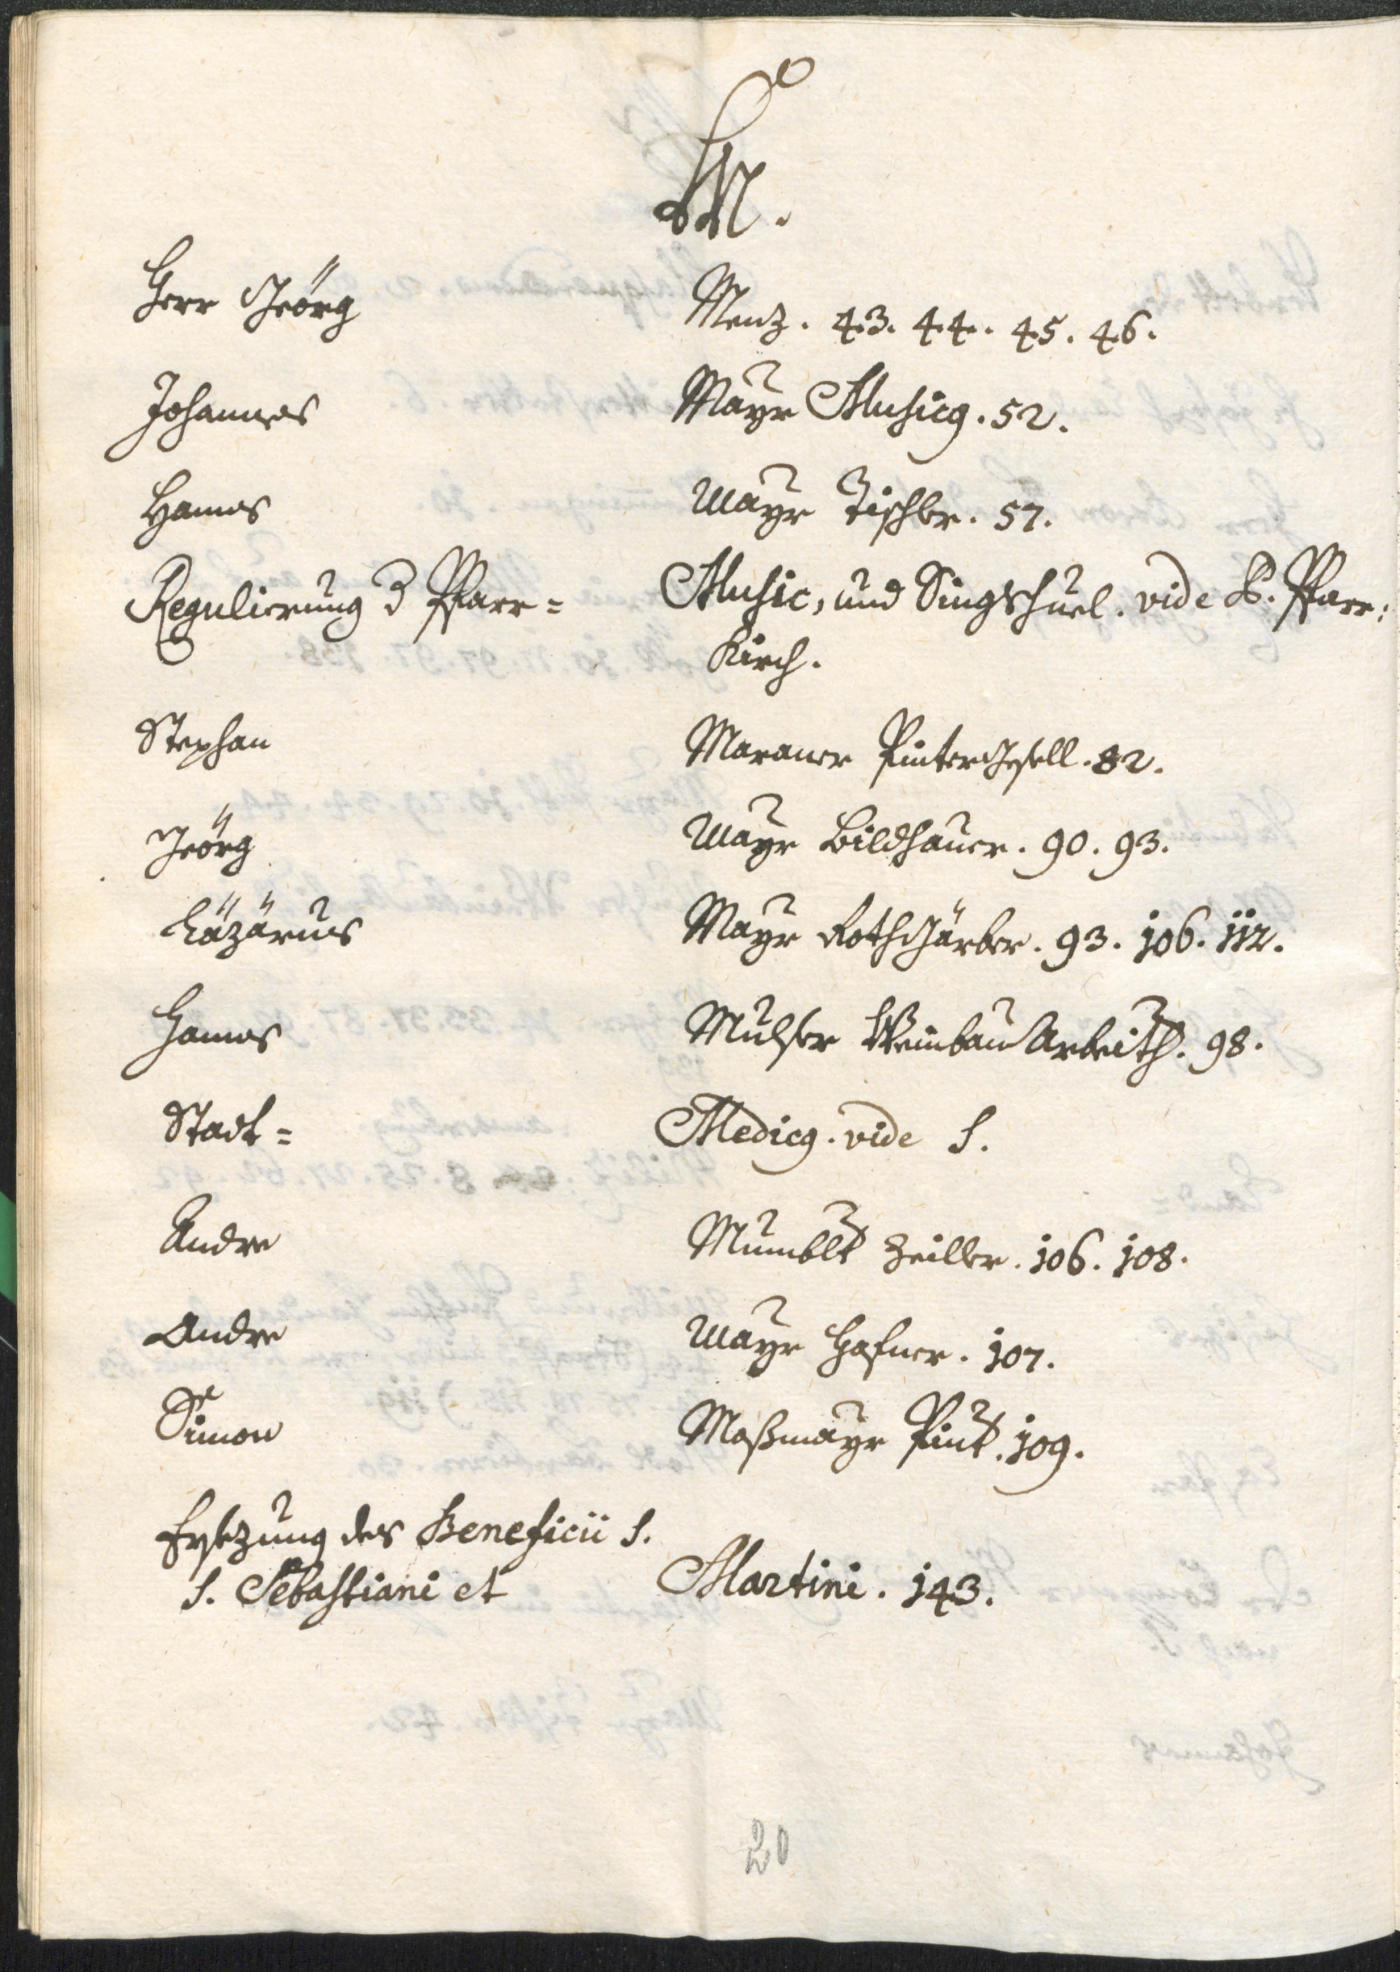 M.
Herr Jeörg Menz. 43. 44. 45. 46.
Johannes Mayr Musicg. 52.
Hannes Mayr Tischler. 57.
Regulierung d Pfarr= Music, und Singschuel. vide P. Pfarr:
Kirch.
Stephan Maraner Pintergesell. 82.
Jeörg Mayr Bildhauer. 90. 93.
Läzärus Mayr Rothgärber. 93. 106. 112.
Hannes Mulser Weinbau Arbeith. 98.
Stadt= Medicg. vide S.
Andre Mumblt Zeiller. 106. 108.
Andre Mayr Hafner. 107.
Simon Moßmayr Pint. 109.
Ersezung des Beneficii S.
S. Sebastiani et Martini. 143.
20